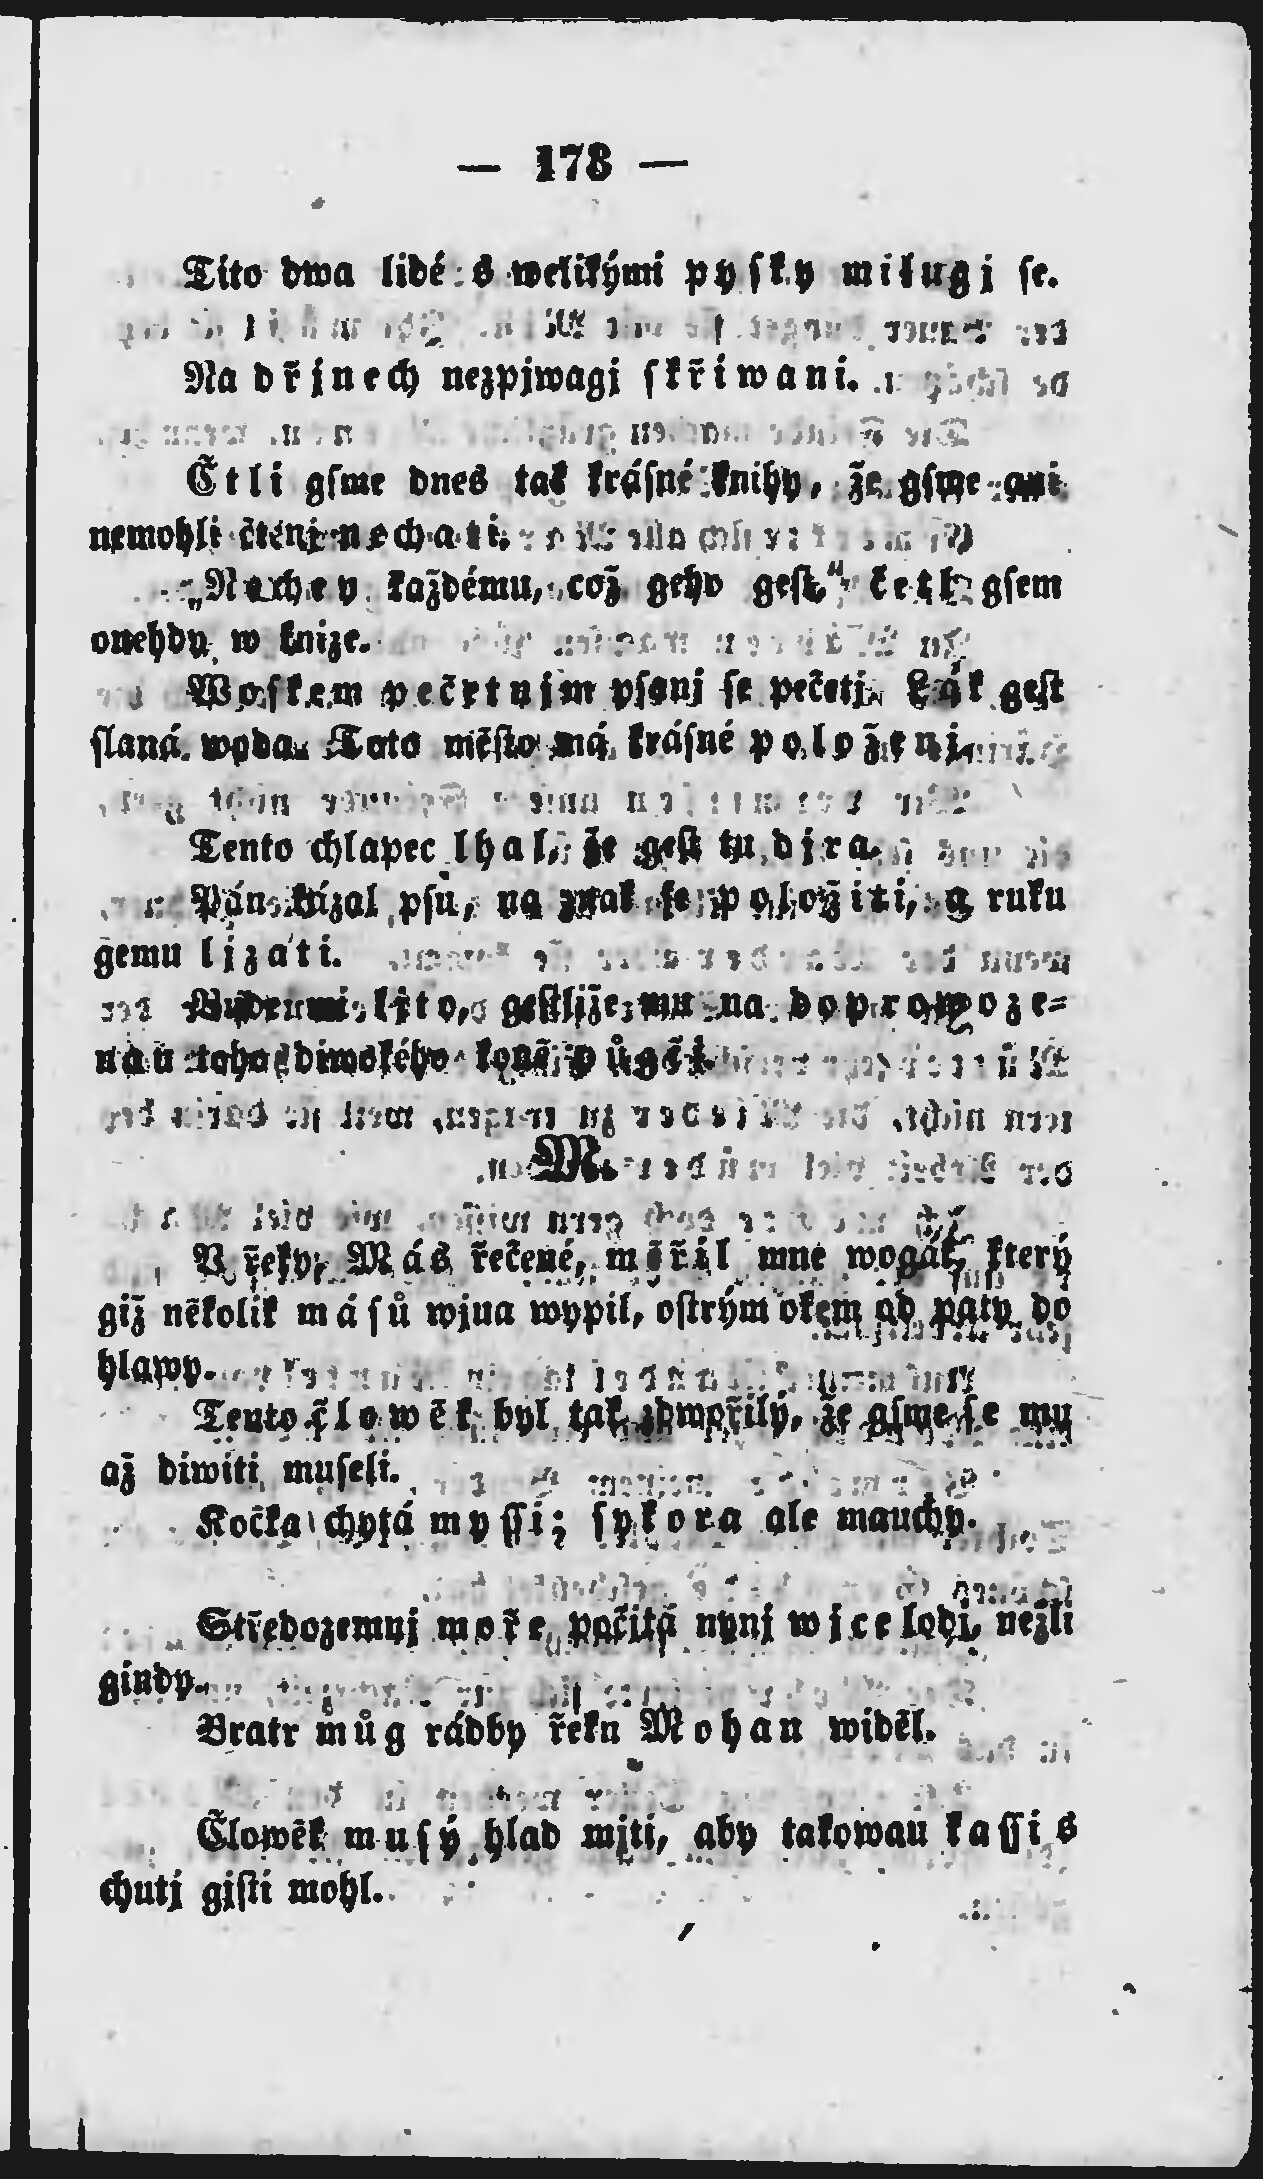 — 178 —
Tito dwa lidé s welikými pysky milugj se.
Na dřjnech nezpjwagj skřiwani.
Čtli gsme dnes tak krásné knihy, že gsme ani
nemohli čtěnj nechati.
„Nechey každému, což geho gest“ četl gsem
onehdy w knize.
Woskem pečetnjm psanj se pečetj. Lák gest
slaná woda. Toto město má krásné položenj.
Tento chlapec lhal, že gest tu djra.
Pán kázal psu, na znak se položiti, a ruku
gemu ljzati.
Bude mi ljto, gestliže mu na doprowoze=
nau toho diwokého koně půgčj.
M.
V řeky, Más řečené, měřil mne wogák, který
giž několik másů wjna wypil, ostrým okem od paty do
hlawy.
Tento člowěk byl tak zdwořilý, že gsme se mu
až diwiti museli.
Kočka chytá myssi; sykora ale mauchy.
Středozemnj moře počitá nynj wjce lodj, nežli
gindy.
Bratr můg rádby řeku Mohan widěl.
Člowěk musý hlad mjti, aby takowau kassi s
chutj gjsti mohl.